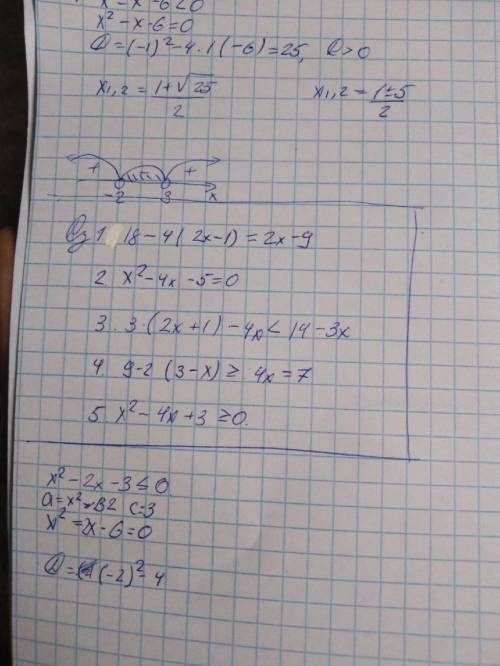 x² - x - 6 < 0
x² - x - 6 = 0
D = (-1)² - 4 · 1 (-6) = 25, D > 0
x₁,₂ = (1 + √25)/2 x₁,₂ = (1 ± 5)/2
+ +
-2 3 x
Дз 1 18 - 4 (2x - 1) = 2x - 9
2 x² - 4x - 5 = 0
3. 3 · (2x + 1) - 4x < 14 - 3x
4. 9 - 2 (3 - x) ≥ 4x = 7
5. x² - 4x + 3 ≥ 0.
x² - 2x - 3 ≤ 0
a = x² - B2 c = 3
x² - x - 6 = 0
D = (-2)² - 4